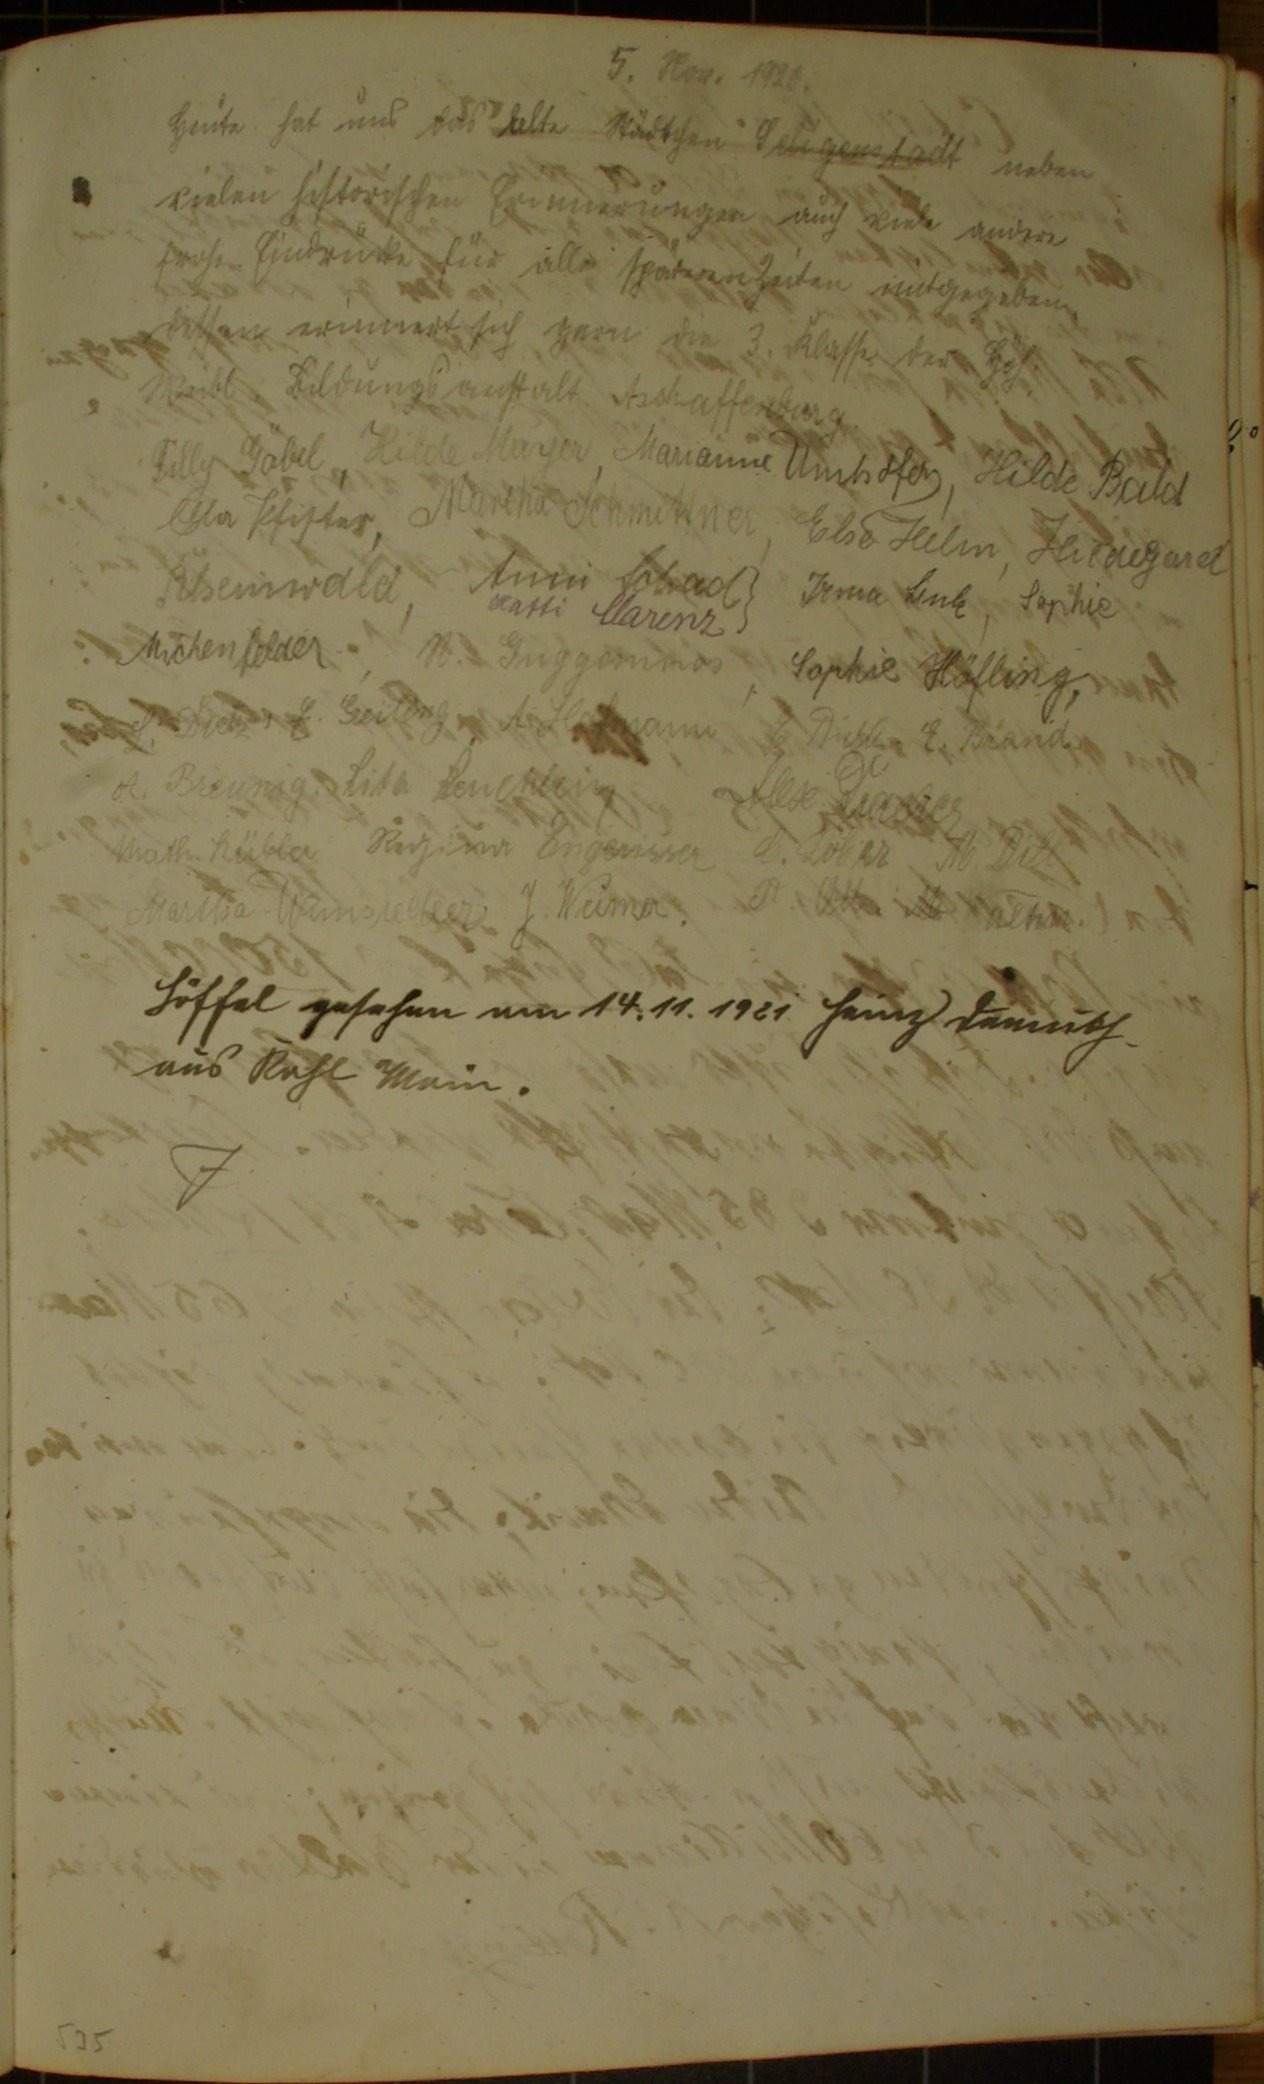 5. Nov. 1920.
Heute hat uns das alte Städtchen Seligenstadt neben
vielen historischen Erinnerungen auch viele andere
frohe Eindrücke für alle späteren Zeiten mitgegeben,
dessen erinnert sich gern die 3. Klasse der
Weibl. Bildungsanstalt Aschaffenburg
Tilly Göbel, Hilde Mayer, Marianne Umhöfer, Hilde Bald
Ella Pfister, Martha Schmittner, Else Helm, Hildegard
Elsenwald, Anni Schad } Irma Link, Sophie
Katti Clarenz
Michenfelder, N. Guggemos, Sophie Höfling,
Dietz, E. Geiling, A. Hofmann E. Brand
A. Breunig. Lita
Math. Kübler Regina Engerisser M. Dill
Martha J. Weimer. R. Ott.
Löffel gesehen am 14.11.1921 Heinz Demuth
aus Kahl Main.
535